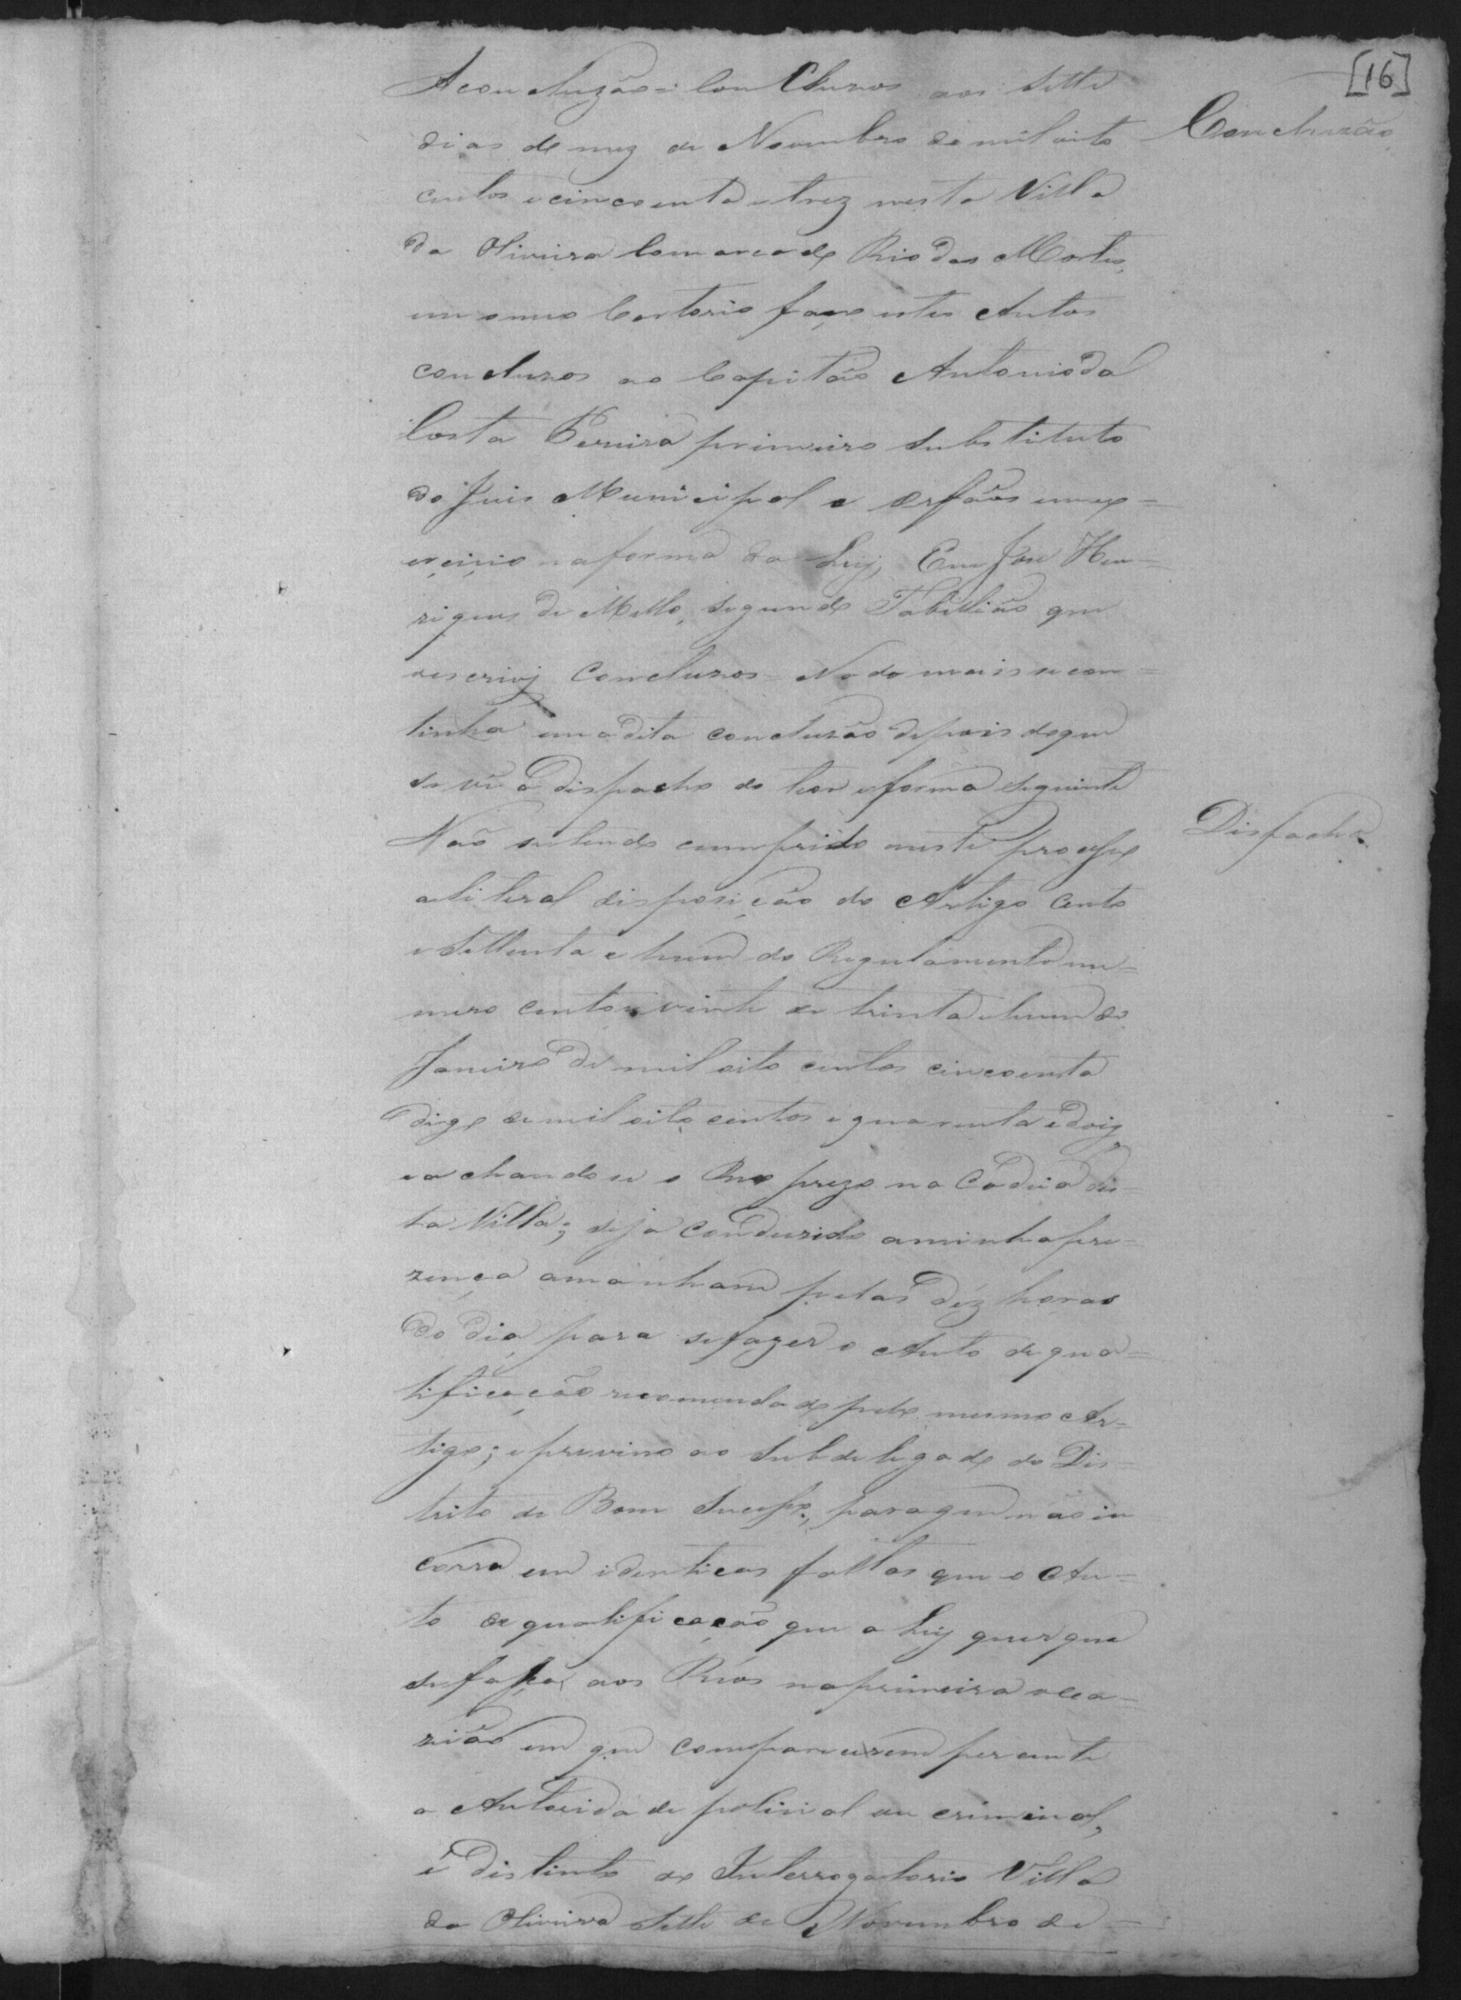 [16]
A concluzão = Concluzos aos sette
Concluzão
dias do mez de Novembro de mil oito
centos e cincoenta e trez nesta Villa
da Oliveira Comarca do Rio das Mortes,
em o meo Cartorio faço estes Autos
concluzos ao Capitão Antonio da
Costa Pereira primeiro substituto
do Juis Municipal e Orfãos em ex=
ercicio na forma da Ley, Eu José Hen=
riques de Mello, segundo Tabillião que
o escrivi Concluzos = Nada mais se con=
tinha em a dita concluzão depois do que
se via o dispacho do theor e forma seguinte
Dispacho
Não se tendo cumprido neste processo
a literal disposição do Artigo cento
e settenta e hum do Regulamento nu=
mero cento e vinte de trinta e hum de
Janeiro de mil oito centos cincoenta
digo de mil oito centos e quarenta e dois,
e achando se o Reo prezo na Cadeia des=
ta Villa; seja conduzido a minha pre=
zença amanham pelas déz horas
do dia para se fazer o Auto de qua=
lificação recomendado pelo mesmo Ar=
tigo; e previno ao Subdelegado do Dis=
trito de Bom Sucesso, para que não in
corra em identicas faltas que o Au=
to de qualificação que a Ley quer que
se faça aos Réos na primeira oca=
zião em que comparecerem perante
a Autoridade policial ou criminal,
é distinto do Interrogatorio Villa
da Oliveira sette de Novembro de =